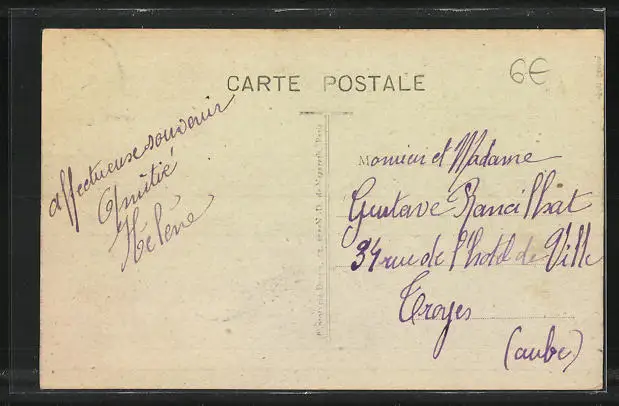 CARTE POSTALE
6€
affectueuse souvenir
Amitié
Hélène
Monsieur et Madame
Gustave Rancilhat
34 rue de l'hotel de Ville
Troyes
(aube)